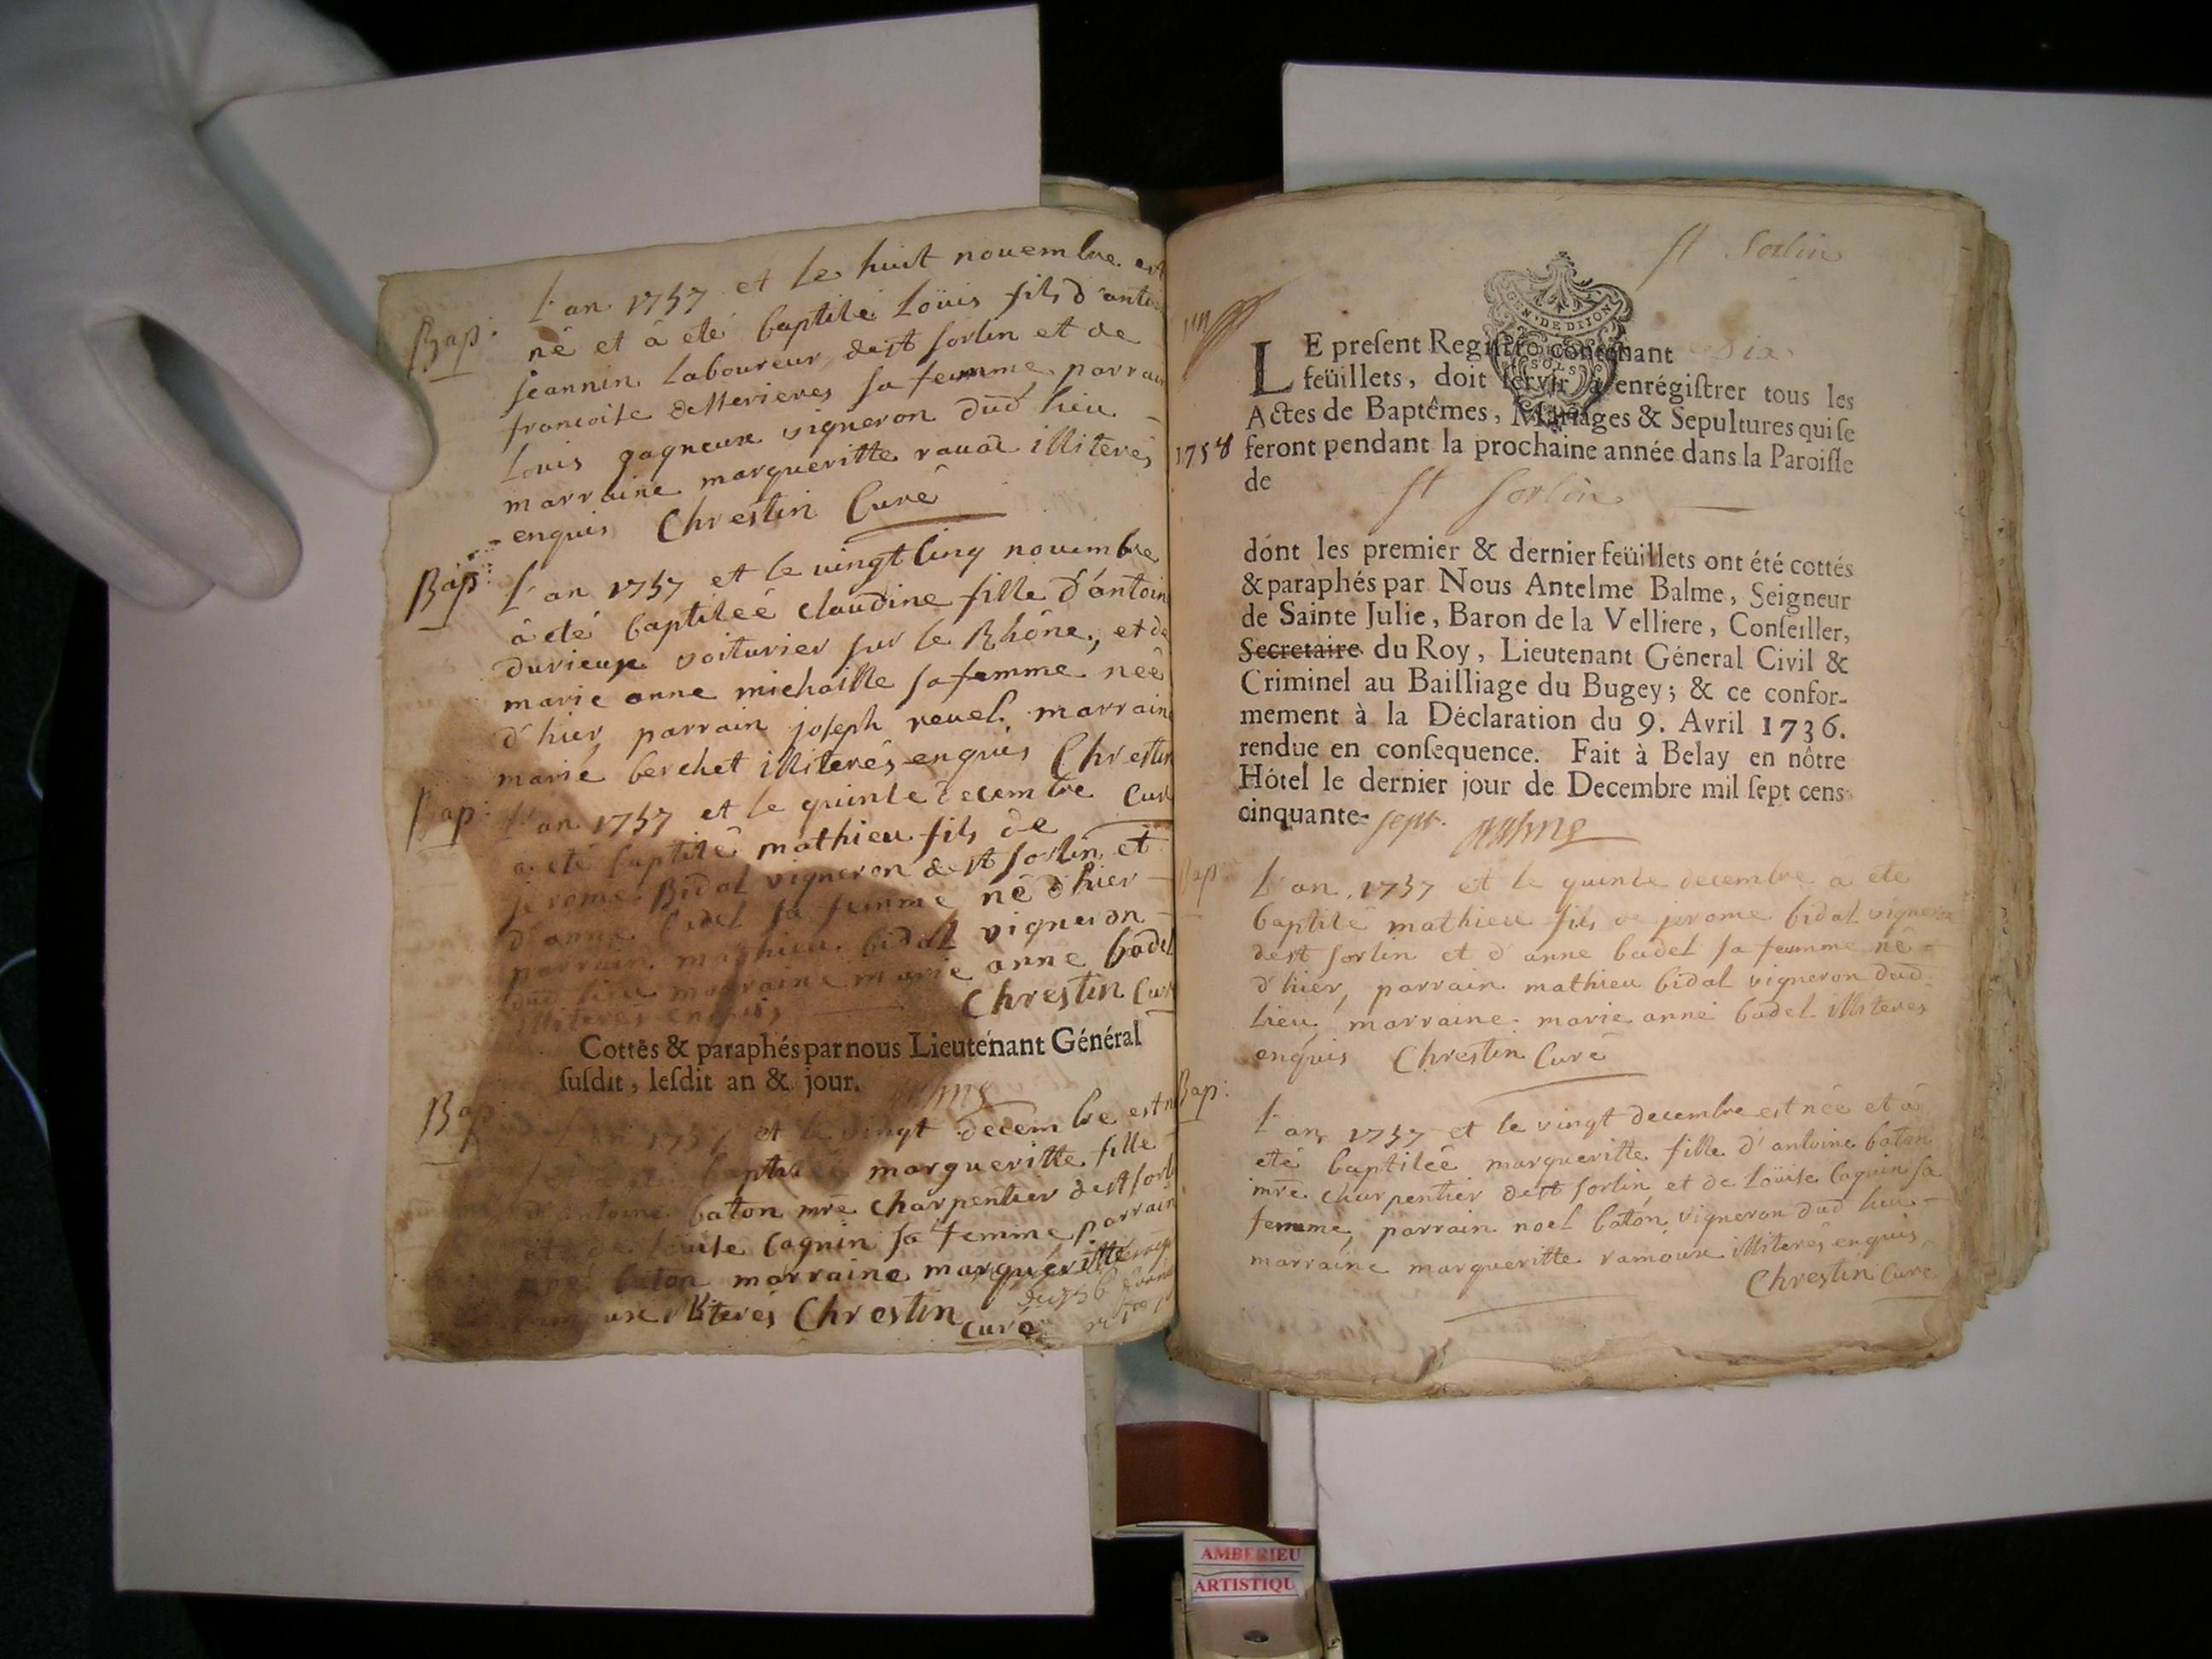 L'an 1757 et le huit nouembre est
Bap: né et à eté baptisé Loüis fils d'antoi
jeannin laboureur de st sorlin et de
francoise desserieres sa femme parrain
Louis gagneux vigneron dud lieu
marraine margueritte rauat illiterés
enquis Chrestin Curé
Bap: L'an 1757 et le vingt cinq nouembre
à eté baptiseé claudine fille d'antoin
durieux voiturier sur le Rhône, et de
marie anne michaille sa femme neé
d'hier parrain joseph reuel marrain
marie berchet illiterés enquis Chrestin
Curé
Bap: L'an 1757 et le quinse decembre
a eté baptisé mathieu fils de
jerome Bidal vigneron de st sorlin et
d'anne badel sa femme né d'hier
parrain mathieu bidal vigneron
dud lieu marraine marie anne badel
illiterés enquis Chrestin Curé
Cottés & paraphés par nous Lieutenant Général
susdit, lesdit an & jour.
Bap L'an 1757 et le vingt decembre est n
et à eté baptiseé margueritte fille
d'antoine baton mre charpentier de st sorl
et de Loüise Cagnin sa femme parrain
noel baton marraine margueritte
ramoux illiterés Chrestin
curé
st Sorlin
GEN. DE DIJON
SOLS
LE present Registre contenant Six
feüillets, doit servir à enrégistrer tous les
Actes de Baptêmes, Mariages & Sepultures qui se
1758 feront pendant la prochaine année dans la Paroisse
de st sorlin
dont les premier & dernier feüillets ont été cottés
& paraphés par Nous Antelme Balme, Seigneur
de Sainte Julie, Baron de la Velliere, Conseiller,
Secretaire du Roy, Lieutenant Géneral Civil &
Criminel au Bailliage du Bugey; & ce confor-
mement à la Déclaration du 9. Avril 1736.
rendue en consequence. Fait à Belay en nôtre
Hôtel le dernier jour de Decembre mil sept cens
cinquante-sept. Balme
Bap L'an 1757 et le quinse decembre a eté
baptisé mathieu fils de jerome bidal vigneron
de st sorlin et d'anne badel sa femme né
d'hier, parrain mathieu bidal vigneron dud
lieu marraine marie anne badel illiteres
enquis Chrestin Curé
Bap: L'an 1757 et le vingt decembre est née et à
eté baptiseé margueritte fille d'antoine baton
mre charpentier de st sorlin et de Loüise Cagnin sa
femme, parrain noel baton vigneron dud lieu
marraine margueritte ramoux illiterés enquis
Chrestin Curé
AMBERIEU
ARTISTIQU